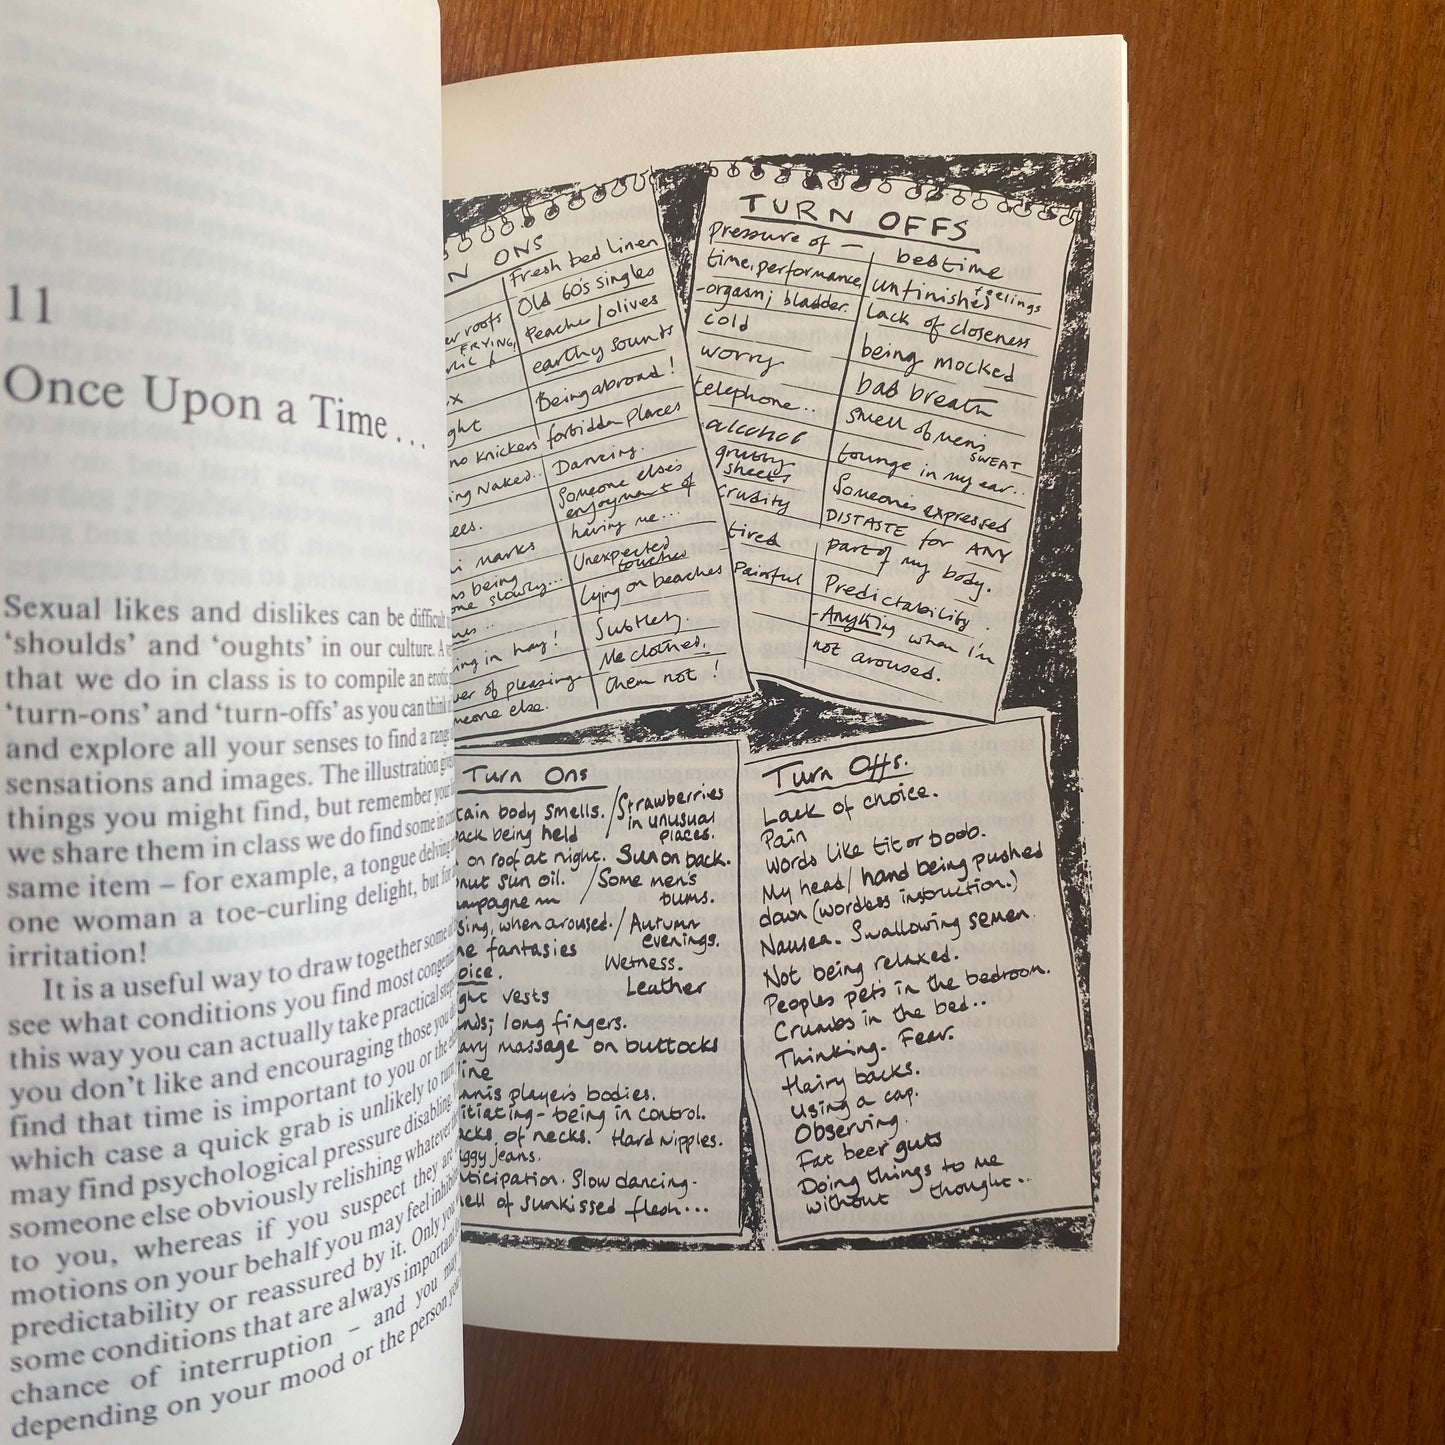 11
Once Upon a Time...
Sexual likes and dislikes can be difficult
'shoulds' and 'oughts' in our culture. A
that we do in class is to compile an erotic
'turn-ons' and 'turn-offs' as you can think
and explore all your senses to find a range
sensations and images. The illustration
things you might find, but remember your
we share them in class we do find some in
same item – for example, a tongue delving
one woman a toe-curling delight, but for
irritation!
It is a useful way to draw together some
see what conditions you find most congenial
this way you can actually take practical steps
you don't like and encouraging those you
find that time is important to you or the
which case a quick grab is unlikely to turn
may find psychological pressure disabling.
someone else obviously relishing whatever
to you, whereas if you suspect they are
motions on your behalf you may feel
predictability or reassured by it. Only you
some conditions that are always important
chance of interruption – and you may
depending on your mood or the person
N ONS
Fresh bed linen
Old 60's singles
roofs Peaches/olives
FRYING,
earthy sounds
Being abroad!
no knickers forbidden places
Dancing.
Naked.. Someone else's
enjoyment of
having me...
marks Unexpected
being touches
slowly... lying on beaches
Subtlety.
in hay! Me clothed,
of pleasing them not!
else.
TURN OFFS
Pressure of —
time, performance,
-orgasm; bladder.
cold
worry
telephone..
alcohol
grubby
sheets
Crudity
tired
Painful
bedtime
unfinished feelings
Lack of closeness
being mocked
bad breath
smell of men's
SWEAT
tounge in my ear..
Someone's expressed
DISTASTE for ANY
part of my body.
Predictability.
-Anything when I'm
not aroused.
Turn Ons
body smells. /Strawberries
in unusual
places.
being held
on roof at night. Sun on back.
sun oil. /Some men's
bums.
when aroused. /Autumn
evenings.
fantasies Wetness.
Leather
vests
long fingers.
massage on buttocks
player's bodies.
being in control.
of necks. Hard Nipples.
jeans.
Slow dancing-
of sunkissed flesh...
Turn Offs.
Lack of choice.
Pain
Words like tit or boob.
My head/hand being pushed
down (wordless instruction.)
Nausea. Swallowing semen.
Not being relaxed.
Peoples pet's in the bedroom.
Crumbs in the bed..
Thinking. Fear.
Hairy backs.
Using a cap.
Observing.
Fat beer guts
Doing things to me
without thought..